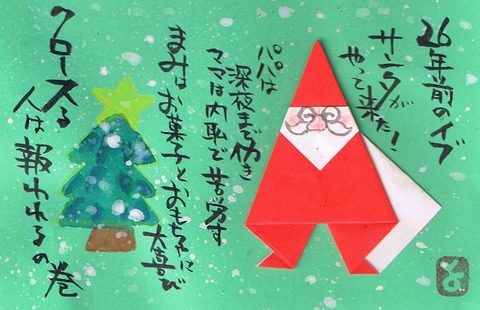 26年前のイブ
サンタが
やって来た!
パパは
深夜まで働き
ママは内職で苦労す
まみはお菓子とおもちゃに
大喜び
クロースる
人は報われるの巻